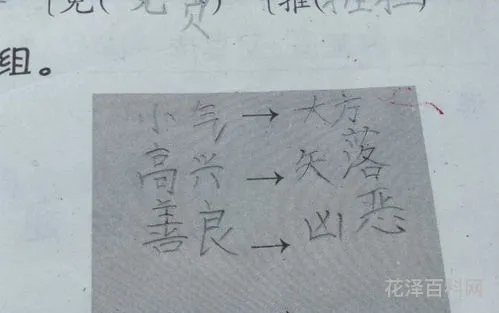 组。
小气→大方
高兴→矢落
善良→凶恶
花泽百科网